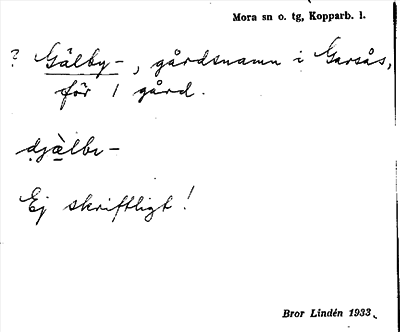 Mora sn o. tg, Kopparb. l.
? Gälby-, gårdsnamn i Garsås,
för 1 gård.
djälbı-
Ej skriftligt!
Bror Lindén 1933.